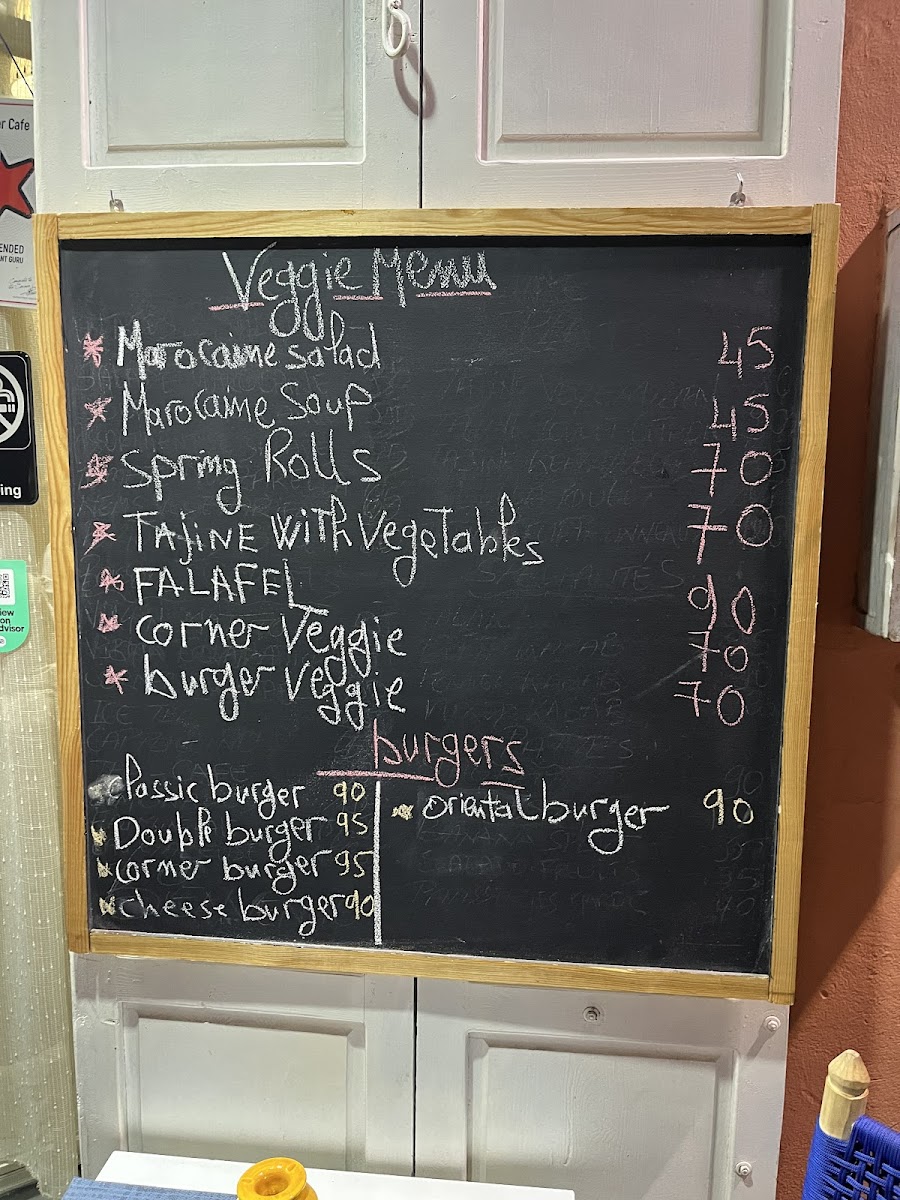 Veggie Menu
* Marocaine salad 45
* Marocaine Soup 45
* Spring Rolls 70
* TAJINE WITH VegeTables 70
* FALAFEL 90
* corner Veggie 70
* burger Veggie 70
burgers
Classic burger 90
* Double burger 95
* corner burger 95
* cheese burger 90
* oriental burger 90
r Cafe
ENDED
NT GURU
ing
iew
on
dvisor